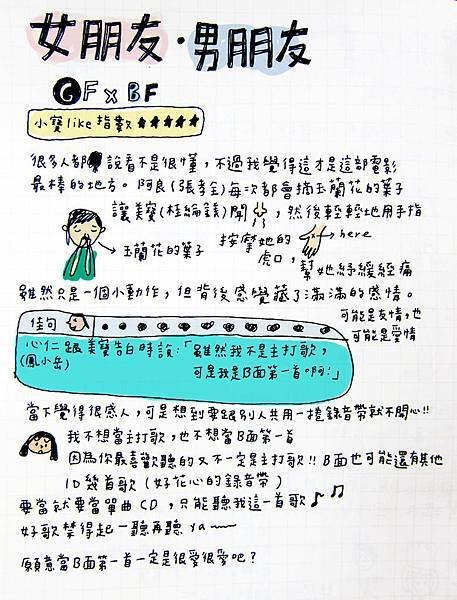 女朋友·男朋友
GF x BF
小寶like指數★★★★★
很多人都說看不是很懂，不過我覺得這才是這部電影
最棒的地方。阿良(張孝全)每次都會摘玉蘭花的葉子
讓美寶(桂綸鎂)聞，然後輕輕地用手指
→玉蘭花的葉子
按摩她的
虎口，
→here
幫她紓緩經痛
雖然只是一個小動作，但背後感覺藏了滿滿的感情。
可能是友情，也
可能是愛情
佳句
心仁跟美寶告白時說:「雖然我不是主打歌，
(鳳小岳)
可是我是B面第一首啊!」
當下覺得很感人，可是想到要跟別人共用一捲錄音帶就不開心!!
我不想當主打歌，也不想當B面第一首
因為你最喜歡聽的又不一定是主打歌!! B面也可能還有其他
10幾首歌(好花心的錄音帶)
要當就要當單曲CD，只能聽我這一首歌♪♫
好歌禁得起一聽再聽 ya~~
願意當B面第一首一定是很愛很愛吧?